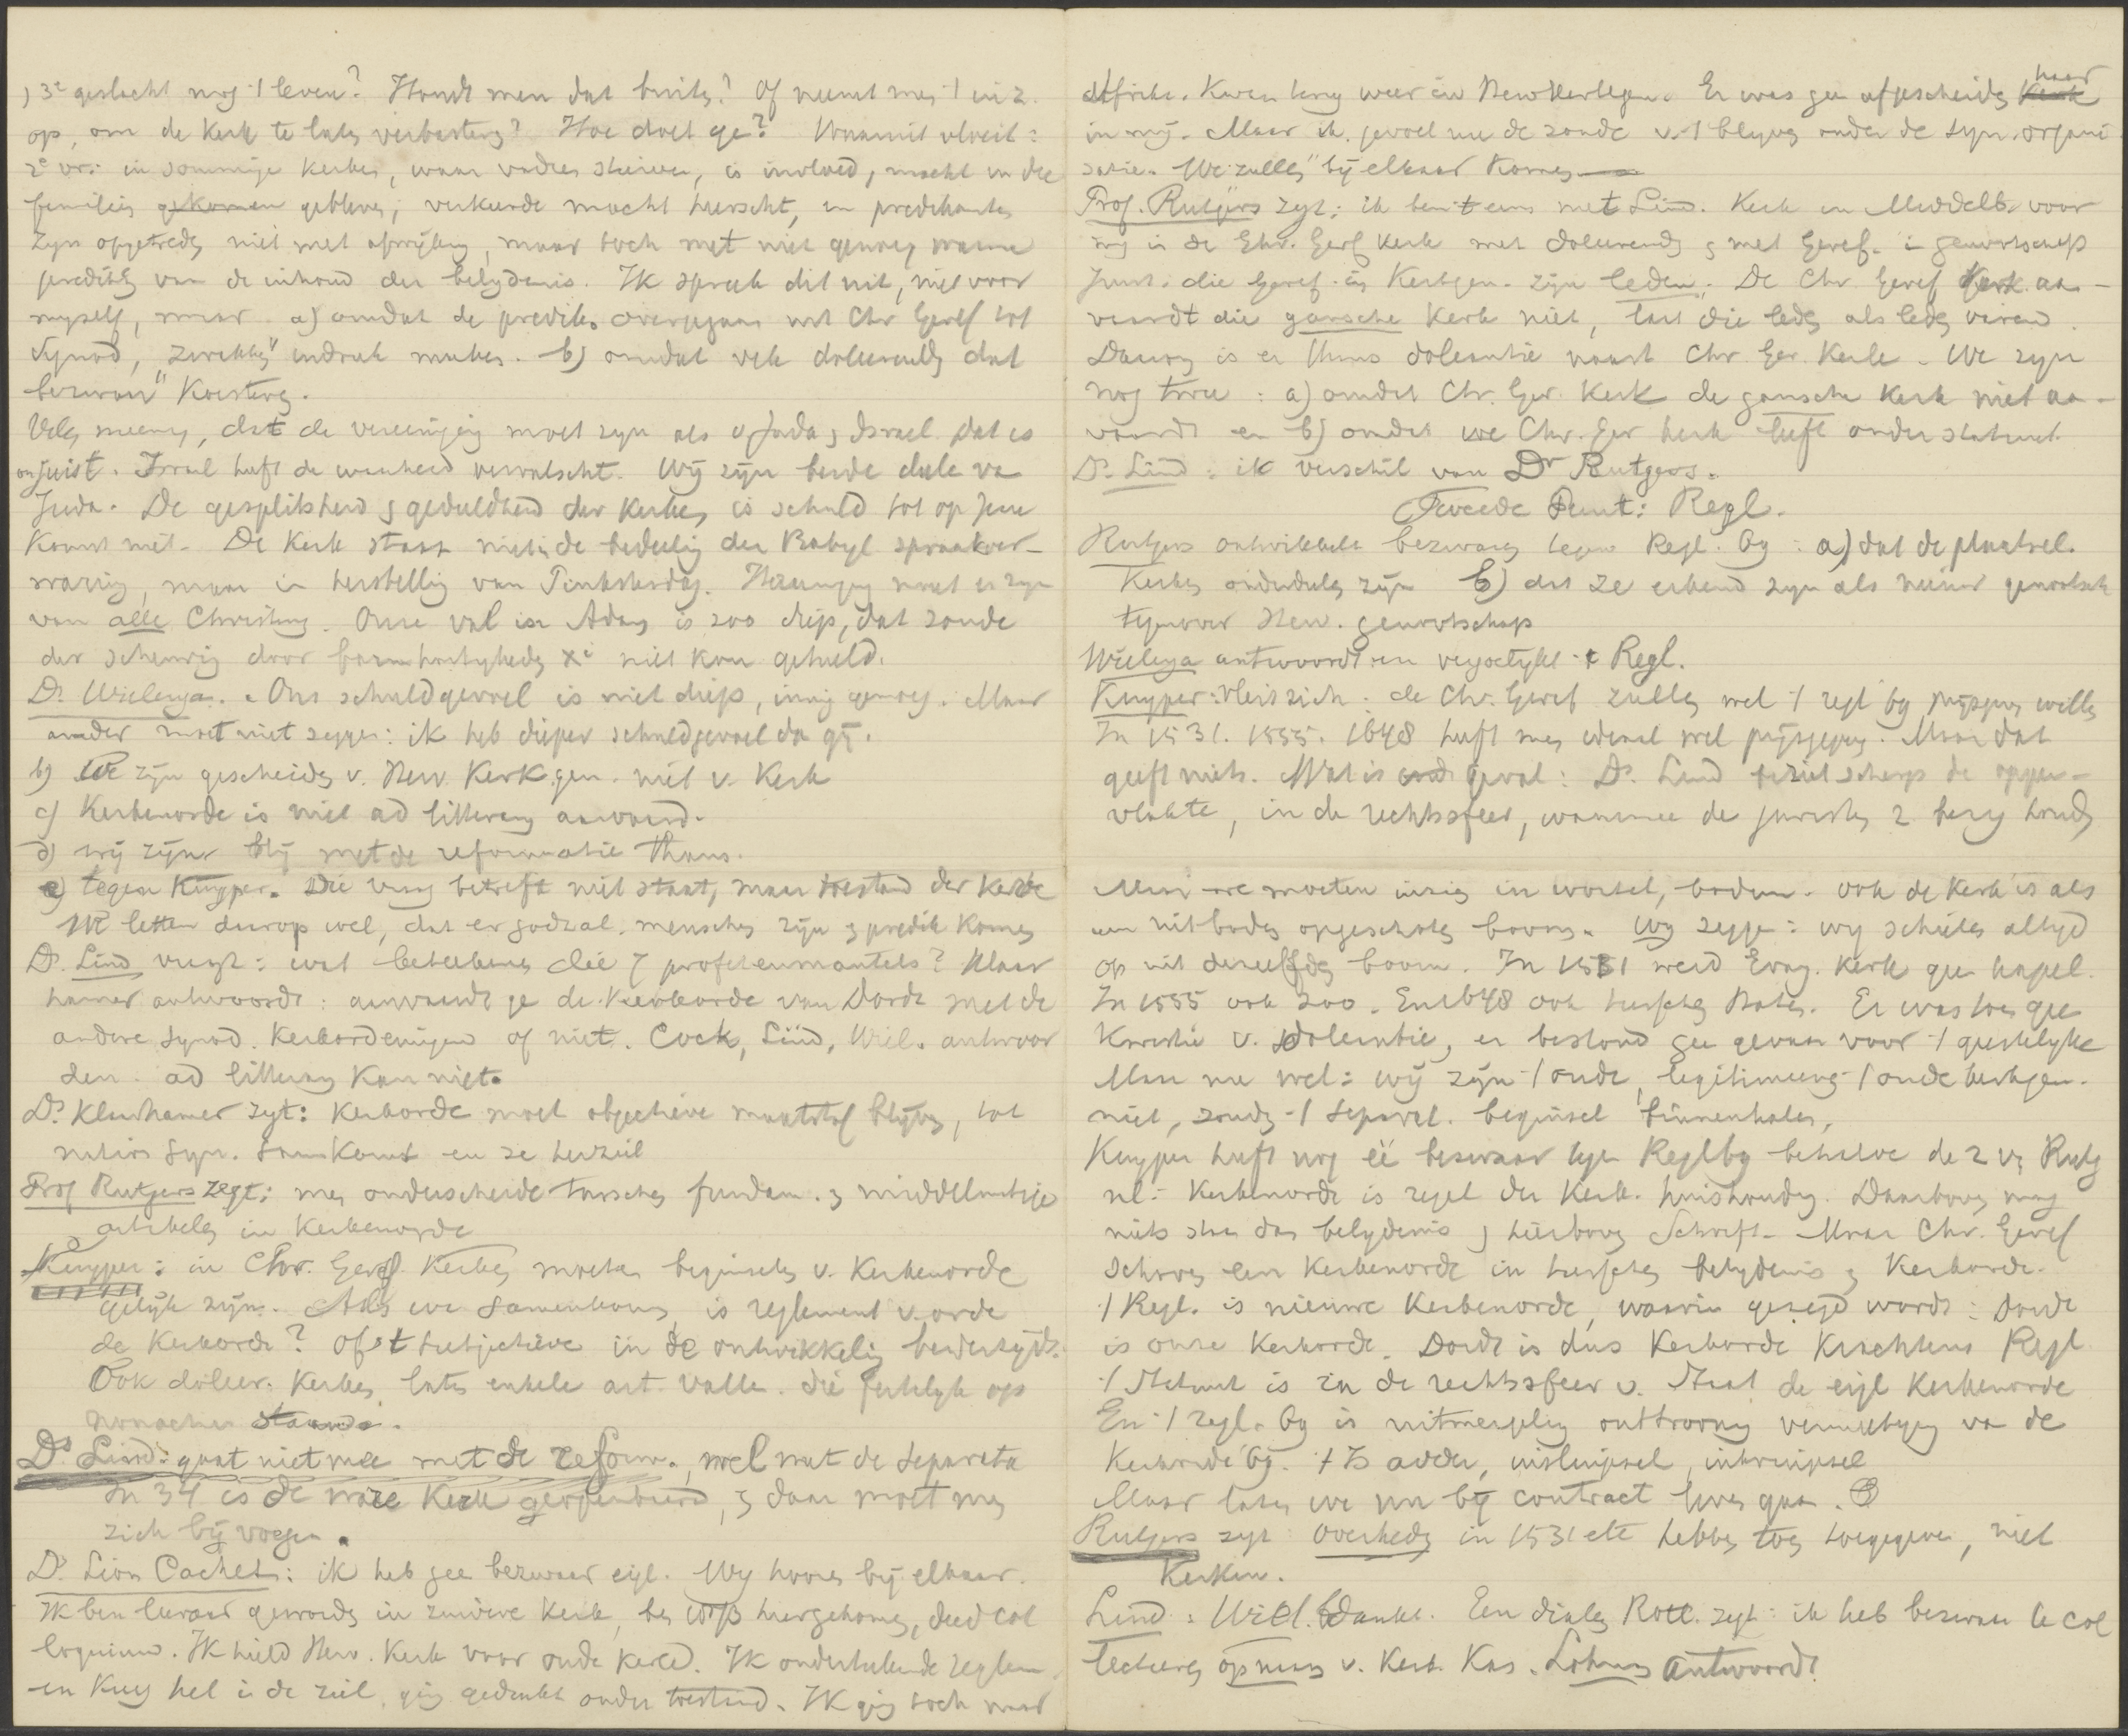 3e geslacht nog 't leven? Houdt men dat buiten? Of neemt men 't in z.
op, om de Kerk te laten verbasteren? Hoe doet ge? Waaruit vloeit:
2e vr: in sommige Kerken, waar vaders stierven, is invloed, macht in die
families gekomen gebleven; verkeerde macht heerscht, en predikanten
zijn opgetreden niet met afwijking, maar toch met niet genoeg warme
prediking van de inhoud der belydenis. Ik spreek dit uit, niet voor
myself, maar a) omdat de predik. overgegaan uit Chr Geref tot
Synod, "zwakken" indruk maken. b) omdat vele doleerenden dat
bezwaar" Koesteren.
Velen meenen, dat de vereeniging moet zyn als v Juda & Israel. Dat is
onjuist. Israel heeft de waarheid vervalscht. Wij zijn beide deelen van
Juda. De gesplitsheid & gedeeldheid der Kerken is schuld tot op Jezus
Komst met. De Kerk staat niet in de bedeeling der Babyl spraakver-
warring, maar in herstelling van Pinksterdag. Hereeniging moet er zyn
van alle Christenen. Onze val in Adam is zoo diep, dat zonde
der scheuring door barmhartigheden Xi niet kon geheeld.
Ds Wielenga. Ons schuldgevoel is niet diep, innig genoeg. Maar
ander moet niet zeggen: ik heb dieper schuldgevoel dan gij.
b) We zijn gescheiden v. Herv. Kerk.gen. niet v. Kerk
c) Kerkenorde is niet ad litteram aanvaard.
d) wij zijn blij met de reformatie thans.
e) tegen Kuyper. Die vraag betreft niet staat, maar toestand der Kerk
We letten daarop wel, dat er godzal. menschen zijn & predik Komen
Ds. Lind vraagt: wat beteekenen die 7 profetenmantels? Klaar
hamer antwoordt: aanvaardt ge de Kerkorde van Dordt met de
andere synod. Kerkordeningen of niet. Cock, Lind, Wiel. antwoor
den. ad litteram Kan niet.
Ds. Klaarhamer zegt: Kerkorde moet objectieve maatstaf blijven, tot
nation syn. samKomt en ze herziet
Prof Rutgers zegt: men onderscheide tusschen fundam. & middelmatige
artikelen in Kerkenorde
Kuyper: in Chr. Geref. Kerken moeten beginselen v. Kerkenorde
gelijk zijn. Als we samenkomen, is reglement v. orde
de Kerkorde? Of 't subjectieve in de ontwikkeling beiderzijds.
Ook doleer. Kerken laten enkele art. vallen. die feitelyk op
staande.
Ds Lind: gaat niet mee met de reform., wel met de Separatie
In 34 is de ware Kerk geopenbaard, & daar moet men
zich bij voegen.
Ds. Lion Cachet: ik heb geen bezwaar eigl. Wy hooren bij elkaar.
Ik ben leeraar geworden in zuivere Kerk, ben hiergekomen, deed col
loquium. Ik hield Herv. Kerk voor oude Kerk. Ik onderteekende reglem
en Kreeg hel in de ziel, ging gedrukt onder toestand. Ik ging toch naar
Afrika. Kwam terug weer in New Kerkgen. Er was geen afgescheiden Kerk haar
in mij. Maar ik gevoel nu de zonde v. 't blijven onder de syn. organi
satie. We "zullen" bij elkaar Komen
Prof. Rutgers zegt: ik ben 't eens met Lind. Kerk in Middelb. voor
mij is de Chr. Geref Kerk met doleerenden & met Geref. in genootschap
Juist. die Geref. in Kerkgen. zijn leden. De Chr. Geref Kerk aan-
vaardt die gansche Kerk niet, laat die leden als leden varen.
Daarom is er thans doleantie naast Chr. Ger. Kerk. We zyn
nog twee: a) omdat Chr. Ger. Kerk de gansche Kerk niet aan-
vaardt en b) omdat uwe Chr. Ger Kerk leeft onder statuut.
Ds. Lind: ik verschil van Dr Rutgers.
Tweede Punt: Regl.
Rutgers ontwikkelt bezwaren tegen Regl. 69: a) dat de plaatsel.
Kerken onderdeelen zijn b) dat ze erkend zyn als nieuw genootsch
tegenover Herv. genootschap
Wielenga antwoordt en vergoelykt 't Regl.
Kuyper: vleit zich: de Chr. Geref zullen wel 't regl 69 prijsgeven willen
In 1531. 1555. 1648 heeft men ideaal wel prijsgegeven. Maar dat
geeft niets. Wat is geval: Ds. Lind beziet scherp de opper-
vlakte, in de rechtssfeer, waarmee de juristen z bezig houden
Maar we moeten inzien in wortel, bodem. Ook de Kerk is als
een uit bodem opgeschoten boom. Wij zeggen: wij schieten altyd
op uit denzelfden boom. In 1531 werd Evang. Kerk geen kapel.
In 1555 ook zoo. En 1648 ook tusschen Staten. Er was toen geen
Kwestie v. doleantie, er bestond geen gevaar voor 't geestelyke
Maar nu wel: wij zijn 't oude, legitimeeren 't oude kerkgen.
niet, zouden 't separat. beginsel binnenhalen,
Kuyper heeft nog één bezwaar tegen Regl 69 behalve de 2 v. Rutg
nl: Kerkenorde is regel der Kerk. huishouding. Daarboven mag
niets staan dan belydenis & hierboven Schrift. Maar Chr. Geref
schoven een Kerkenorde in tusschen belydenis & Kerkorde.
't Regl. is nieuwe Kerkenorde, waarin gezegd wordt: Dordt
is onze Kerkorde. Dordt is dus Kerkorde Krachtens Regl.
't Statuut is in de rechtssfeer v. Staat de eigl Kerkenorde
En 't regl. 69 is onttrooning vernietiging van de
Kerkorde bij. 't Is adder, insluipsel, inkruipsel
Maar laten we nu bij contract heen gaan.
Rutgers zegt Overheden in 1531 etc hebben toen toegegeven, niet
Kerken.
Lind: Wiel. bedankt. Een diaken Rott. zegt: ik heb bezwaar te col
lecteeren opnieuw v. Kerk. Kas. Lohman antwoordt